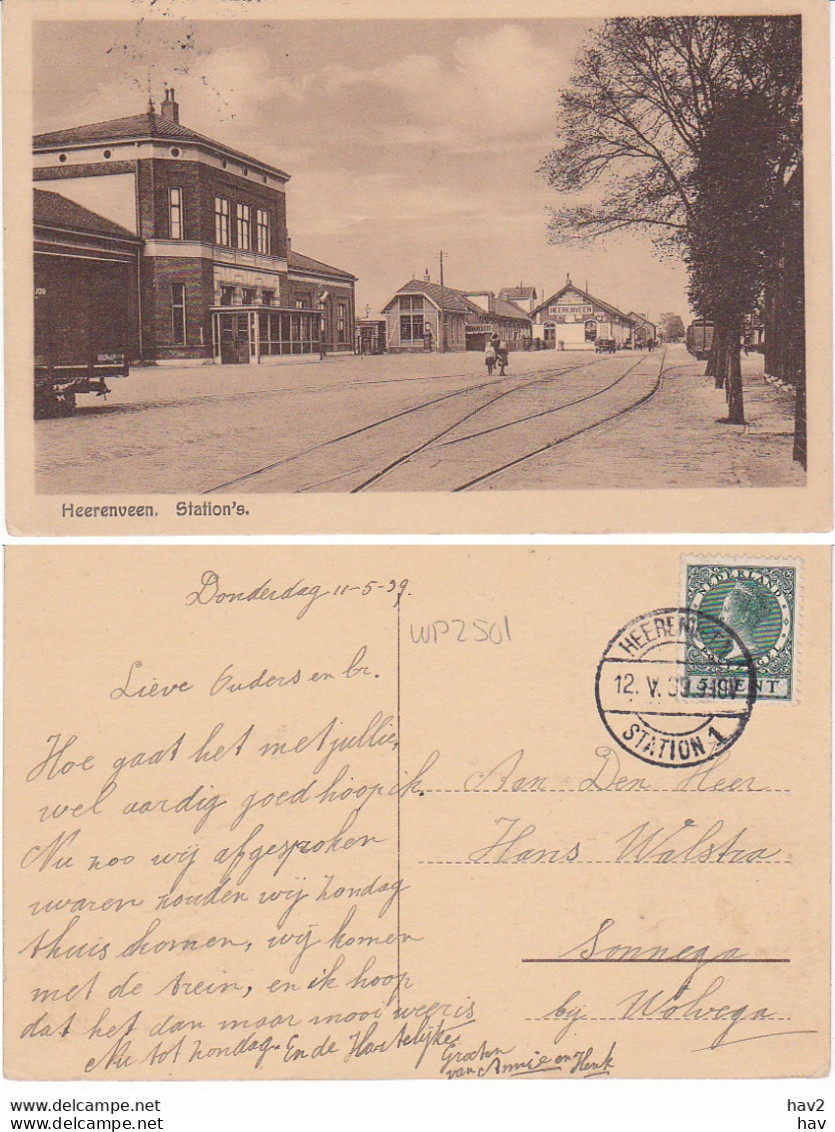 HEERENVEEN
Heerenveen. Station's.
Donderdag 11-5-39.
WP2501
NEDERLAND
5 CENT
HEERENVEEN
12. V. 39
STATION 1
Lieve Ouders en br.
Hoe gaat het met jullie,
wel aardig goed hoop ik.
Nu zoo wij afgesproken
waren zouden wij zondag
thuis komen, wij komen
met de trein, en ik hoop
dat het dan maar mooi weer is
Nu tot zondag. En de Hartelijke
Groeten
van Annie en Henk
Aan Den Heer
Hans Walstra
Sonnega
bij Wolvega
hav2
© www.delcampe.net hav